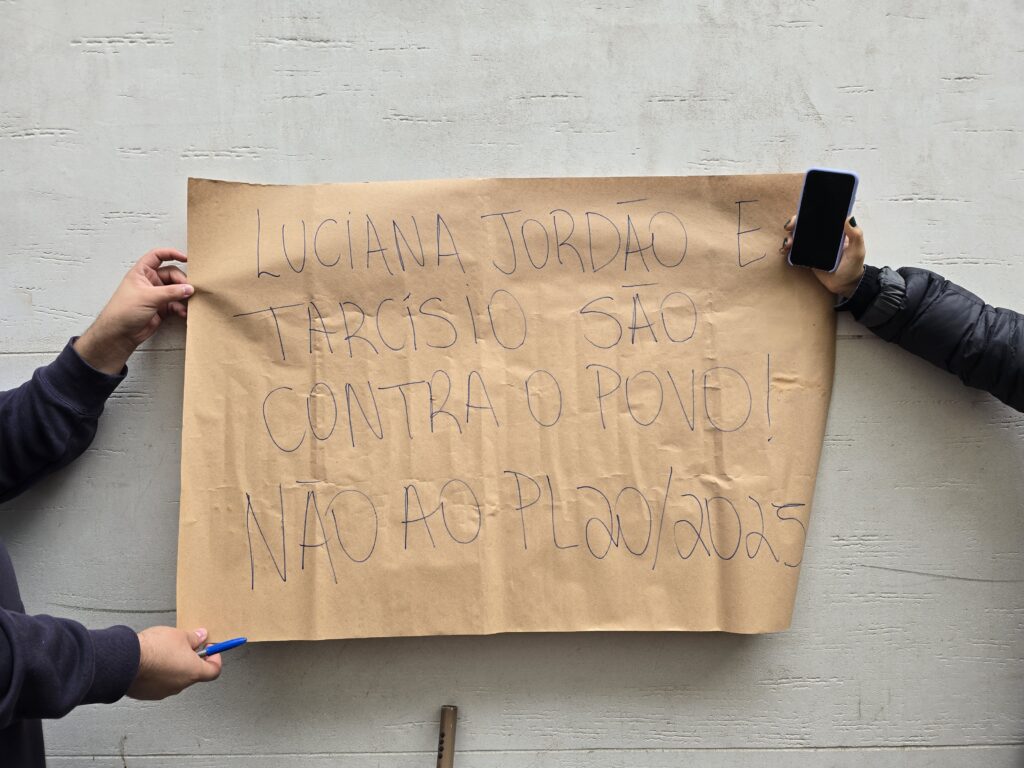 LUCIANA JORDÃO E
TARCÍSIO SÃO
CONTRA O POVO!
NÃO AO PL20/2025